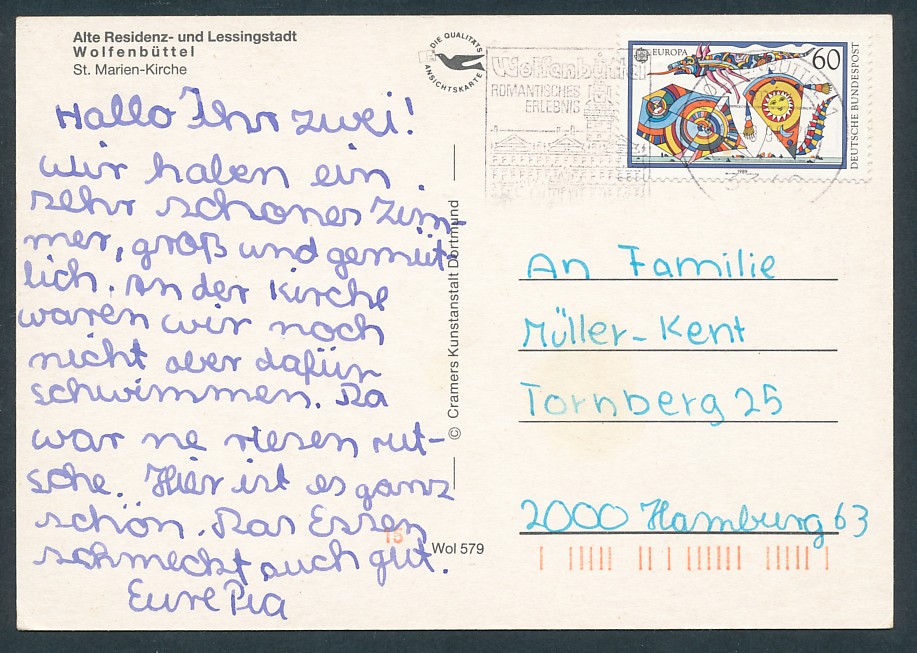 Alte Residenz- und Lessingstadt
Wolfenbüttel
St. Marien-Kirche
DIE QUALITÄTS
ANSICHTSKARTE
Wolfenbüttel
ROMANTISCHES
ERLEBNIS
EUROPA
60
DEUTSCHE BUNDESPOST
1989
Hallo Ihr zwei!
wir haben ein
sehr schönes Zim-
mer, groß und gemüt-
lich. An der Kirche
waren wir noch
nicht aber dafür
schwimmen. Da
war ne riesen rut-
sche. Hier ist es ganz
schön. Das Essen
schmeckt auch gut.
Eure Pia
© Cramers Kunstanstalt Dortmund
Wol 579
15
An Familie
Müller-Kent
Tornberg 25
2000 Hamburg 63